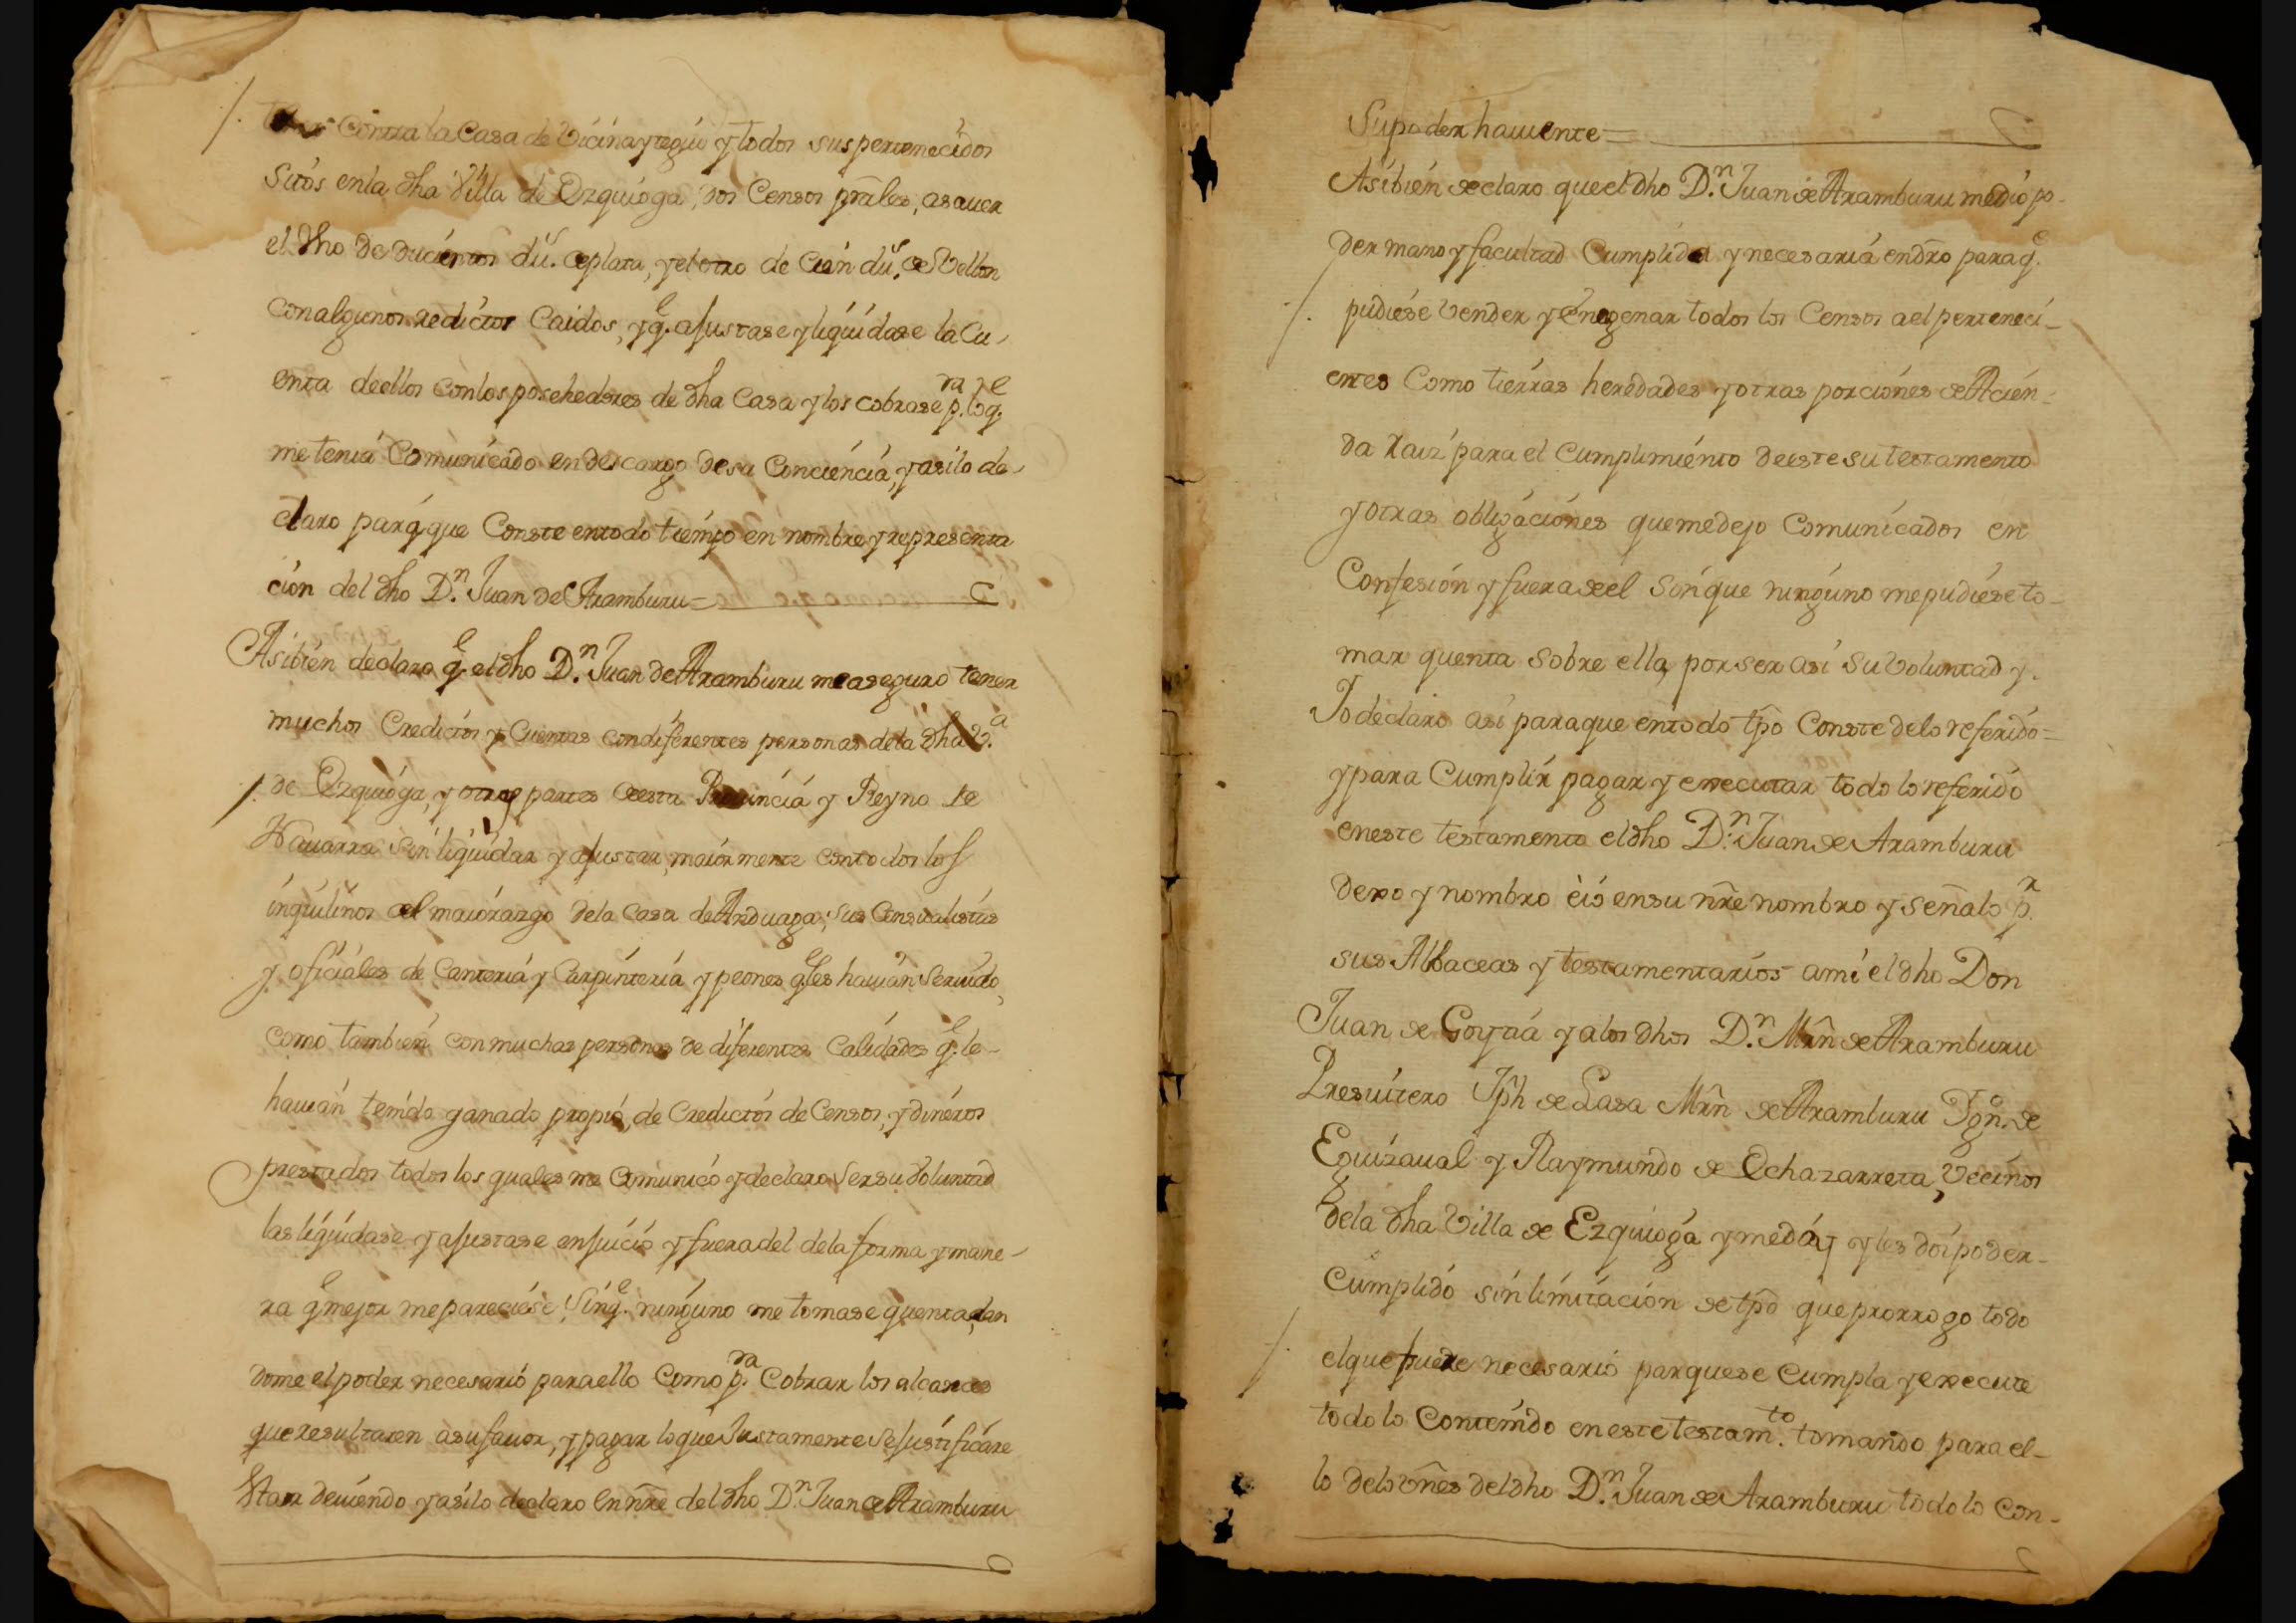 Contra la Casa de Vicinayregui y todos sus pertenecidos
Sitos en la dha Villa de Ezquioga, dos Censos prales, a saver
el dho de ducientos du.s de plata, y el otro de Cien du.s de Vellon
con algunos redictos Caidos, y q.e ajustase y liquidase la Cu-
enta de ellos con los posehedores de dha Casa y los cobrase p.ra lo q.e
me tenia Comunicado en descargo de su Conciencia, y asi lo de-
claro para que Conste en todo tiempo en nombre y representa
cion del dho D.n Juan de Aramburu=
Asibien declaro q.e el dho D.n Juan de Aramburu me aseguro tener
muchos Credictos y Cuentas con diferentes personas de la dha V.a
de Ezquioga, y otras partes de esta Provincia y Reyno de
Navarra sin liquidar y ajustar, maiormente con todos los
inquilinos del maiorazgo de la Casa de Anduaga, sus Censualistas
y oficiales de Canteria y Carpinteria y peones q.e les havian Servido,
como tambien con muchas personas de diferentes Calidades q.e le-
havian tenido ganado propio, de Credictos de Censos, y dineros
prestados todos los quales me Comunicó y declaro Ser su Voluntad
las liquidase y ajustase en juicio y fuera del de la forma y mane-
ra q.e mejor me pareciese, Sin q.e ninguno me tomase quenta, dan
dome el poder necesario para ello Como p.ra Cobrar los alcances
que resultaren a su favor, y pagar lo que Justamente Se justificare
Star deviendo y asi lo declaro En nre del dho D.n Juan de Aramburu
Su poder haviente=
Asibien declaro que el dho D.n Juan de Aramburu me dio po-
der mano y facultad Cumplida y necesaria en dro para q.e
pudiese Vender y Enagenar todos los Censos a el perteneci-
entes Como tierras heredades y otras porciones de Acien-
da raiz para el Cumplimiento de este su testamento
y otras obligaciones que me dejo Comunicados en
Confesion y fuera de el sin que ninguno me pudiese to-
mar quenta sobre ella, por ser asi su Voluntad y.
Jo declaro asi para que en todo tpo Conste de lo referido=
y para Cumplir pagar y executar todo lo referido
en este testamento el dho D.n Juan de Aramburu
dexo y nombro è io en su nre nombro y señalo p.r
sus Albaceas y testamentarios a mi el dho Don
Juan de Goytia y a los dhos D.n Mrn de Aramburu
Presvitero Jph de Lasa Mrn de Aramburu Ygn.o de
Eguizaval y Raymundo de Ochazarreta, Vecinos
de la dha Villa de Ezquioga y me da, y les doi poder-
Cumplido sin limitacion de tpo que prorrogo todo
el que fuere necesario par que se Cumpla y execute
todo lo Contenido en este testam.to tomando para el-
lo de los vnes del dho D.n Juan de Aramburu todo lo Con-